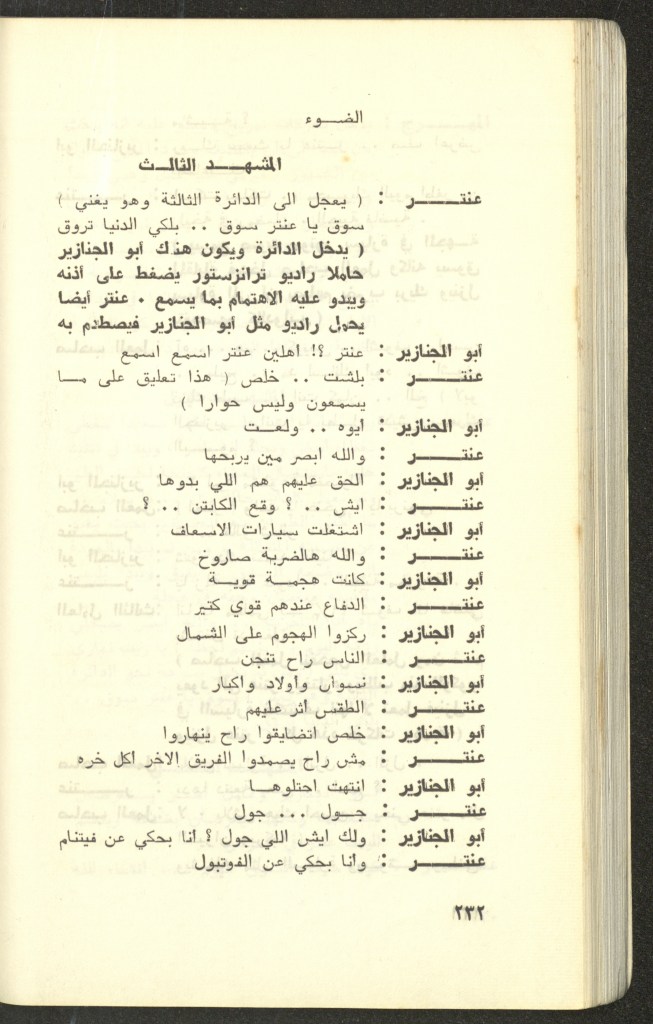 الضوء
المشهد الثالث
عنتر : ( يعجل الى الدائرة الثالثة وهو يغني )
سوق يا عنتر سوق .. بلكي الدنيا تروق
( يدخل الدائرة ويكون هناك أبو الجنازير
حاملا راديو ترانزستور يضغط على أذنه
ويبدو عليه الاهتمام بما يسمع . عنتر أيضا
يحمل راديو مثل أبو الجنازير فيصطدم به
أبو الجنازير : عنتر ؟! اهلين عنتر اسمع اسمع
عنتر : بلشت .. خلص ( هذا تعليق على ما
يسمعون وليس حوارا )
أبو الجنازير : ايوه .. ولعت
عنتر : والله ابصر مين يربحها
أبو الجنازير : الحق عليهم هم اللي بدوها
عنتر : ايش .. ؟ وقع الكابتن .. ؟
أبو الجنازير : اشتغلت سيارات الاسعاف
عنتر : والله هالضربة صاروخ
أبو الجنازير : كانت هجمة قوية
عنتر : الدفاع عندهم قوي كتير
أبو الجنازير : ركزوا الهجوم على الشمال
عنتر : الناس راح تنجن
أبو الجنازير : نسوان وأولاد واكبار
عنتر : الطقس أثر عليهم
أبو الجنازير : خلص اتضايقوا راح ينهاروا
عنتر : مش راح يصمدوا الفريق الاخر اكل خره
أبو الجنازير : انتهت احتلوها
عنتر : جول ... جول
أبو الجنازير : ولك ايش اللي جول ؟ انا بحكي عن فيتنام
عنتر : وانا بحكي عن الفوتبول
٢٣٢